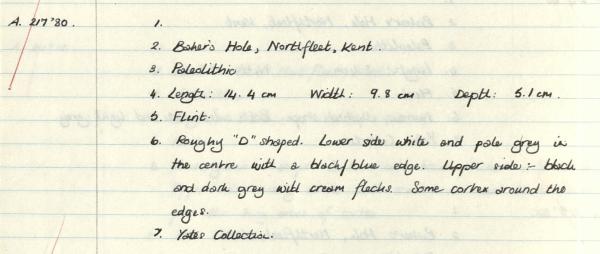 A. 217'80. 1.
2. Baker's Hole, Northfleet, Kent.
3. Paleolithic
4. Length: 14.4 cm Width: 9.8 cm Depth: 5.1 cm.
5. Flint.
6. Roughy "D" shaped. Lower side white and pale grey in
the centre with a black/blue edge. Upper side :- black
and dark grey with cream flecks. Some cortex around the
edges.
7. Yates Collection.